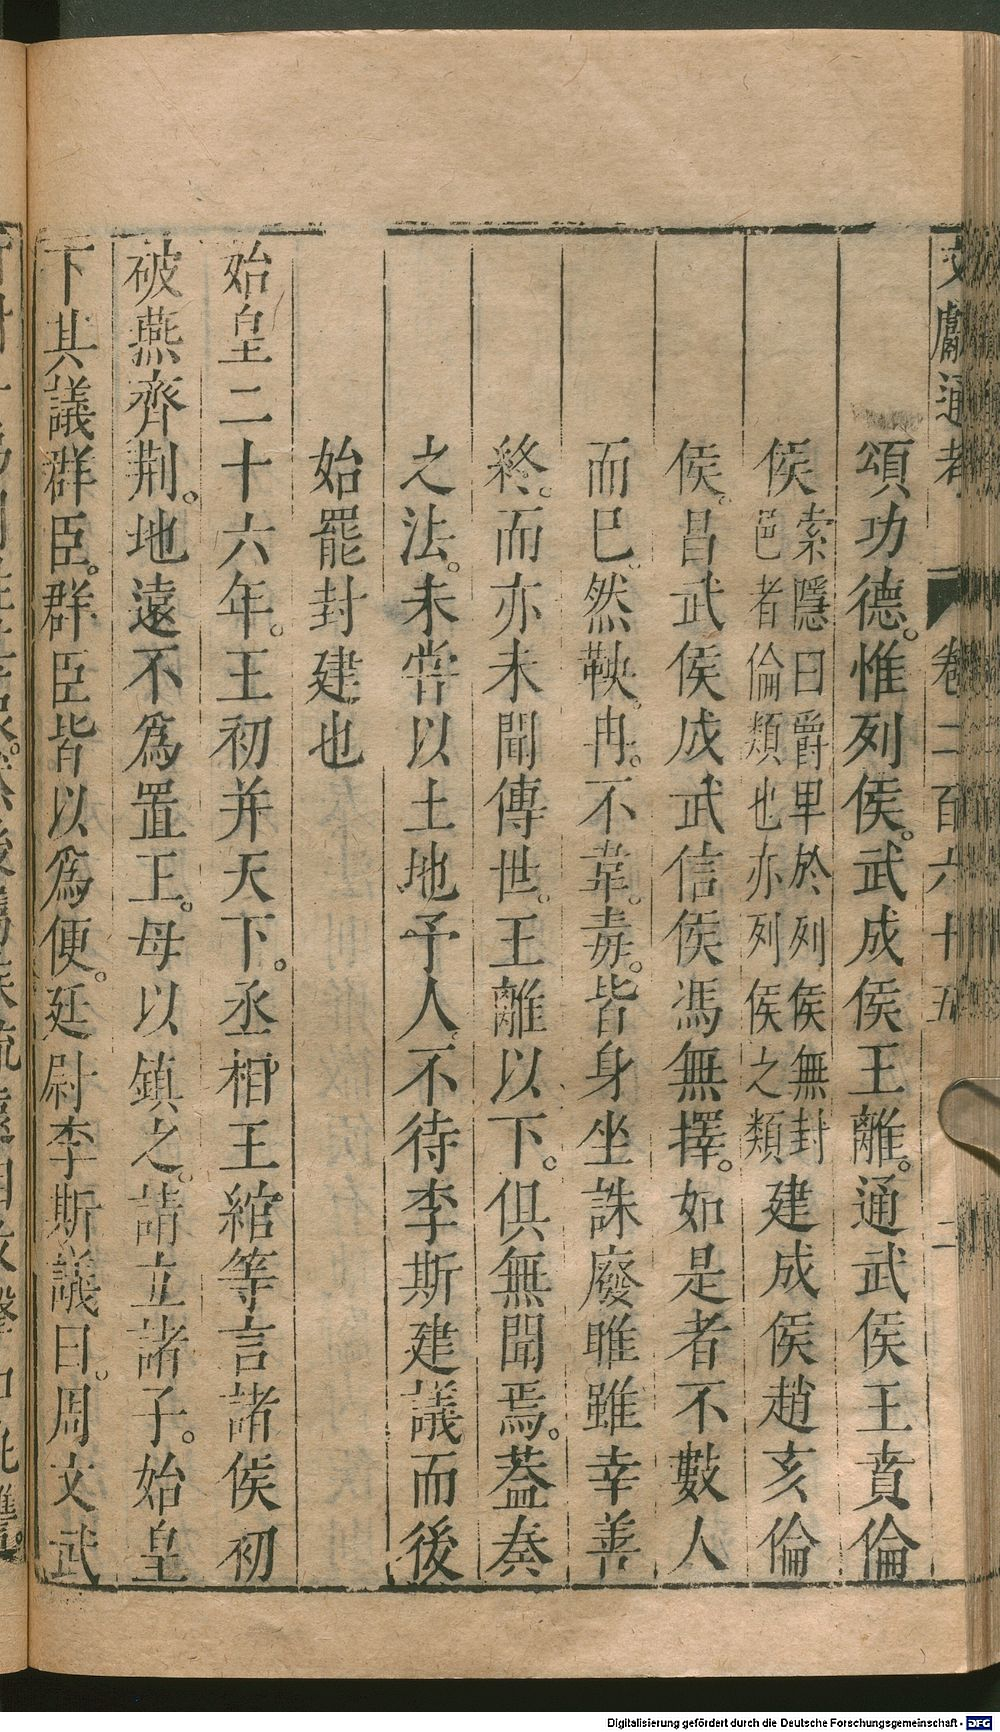 文獻通考 卷二百六十五 二
頌功德。惟列侯。武成侯王離。通武侯王賁倫
侯索隱曰爵卑於列侯無封邑者倫類也亦列侯之類建成侯趙亥倫
侯。昌武侯成武信侯馮無擇。如是者不數人
而巳。然鞅。冉。不韋。毐。皆身坐誅廢睢雖幸善
終。而亦未聞傳世。王離以下。俱無聞焉。蓋秦
之法。未嘗以土地予人。不待李斯建議而後
始罷封建也
始皇二十六年。王初并天下。丞相王綰等言諸侯初
破燕齊荆。地遠不爲置王。毋以鎮之。請立諸子。始皇
下其議群臣。群臣皆以爲便。廷尉李斯議曰。周文武
Digitalisierung gefördert durch die Deutsche Forschungsgemeinschaft - DFG